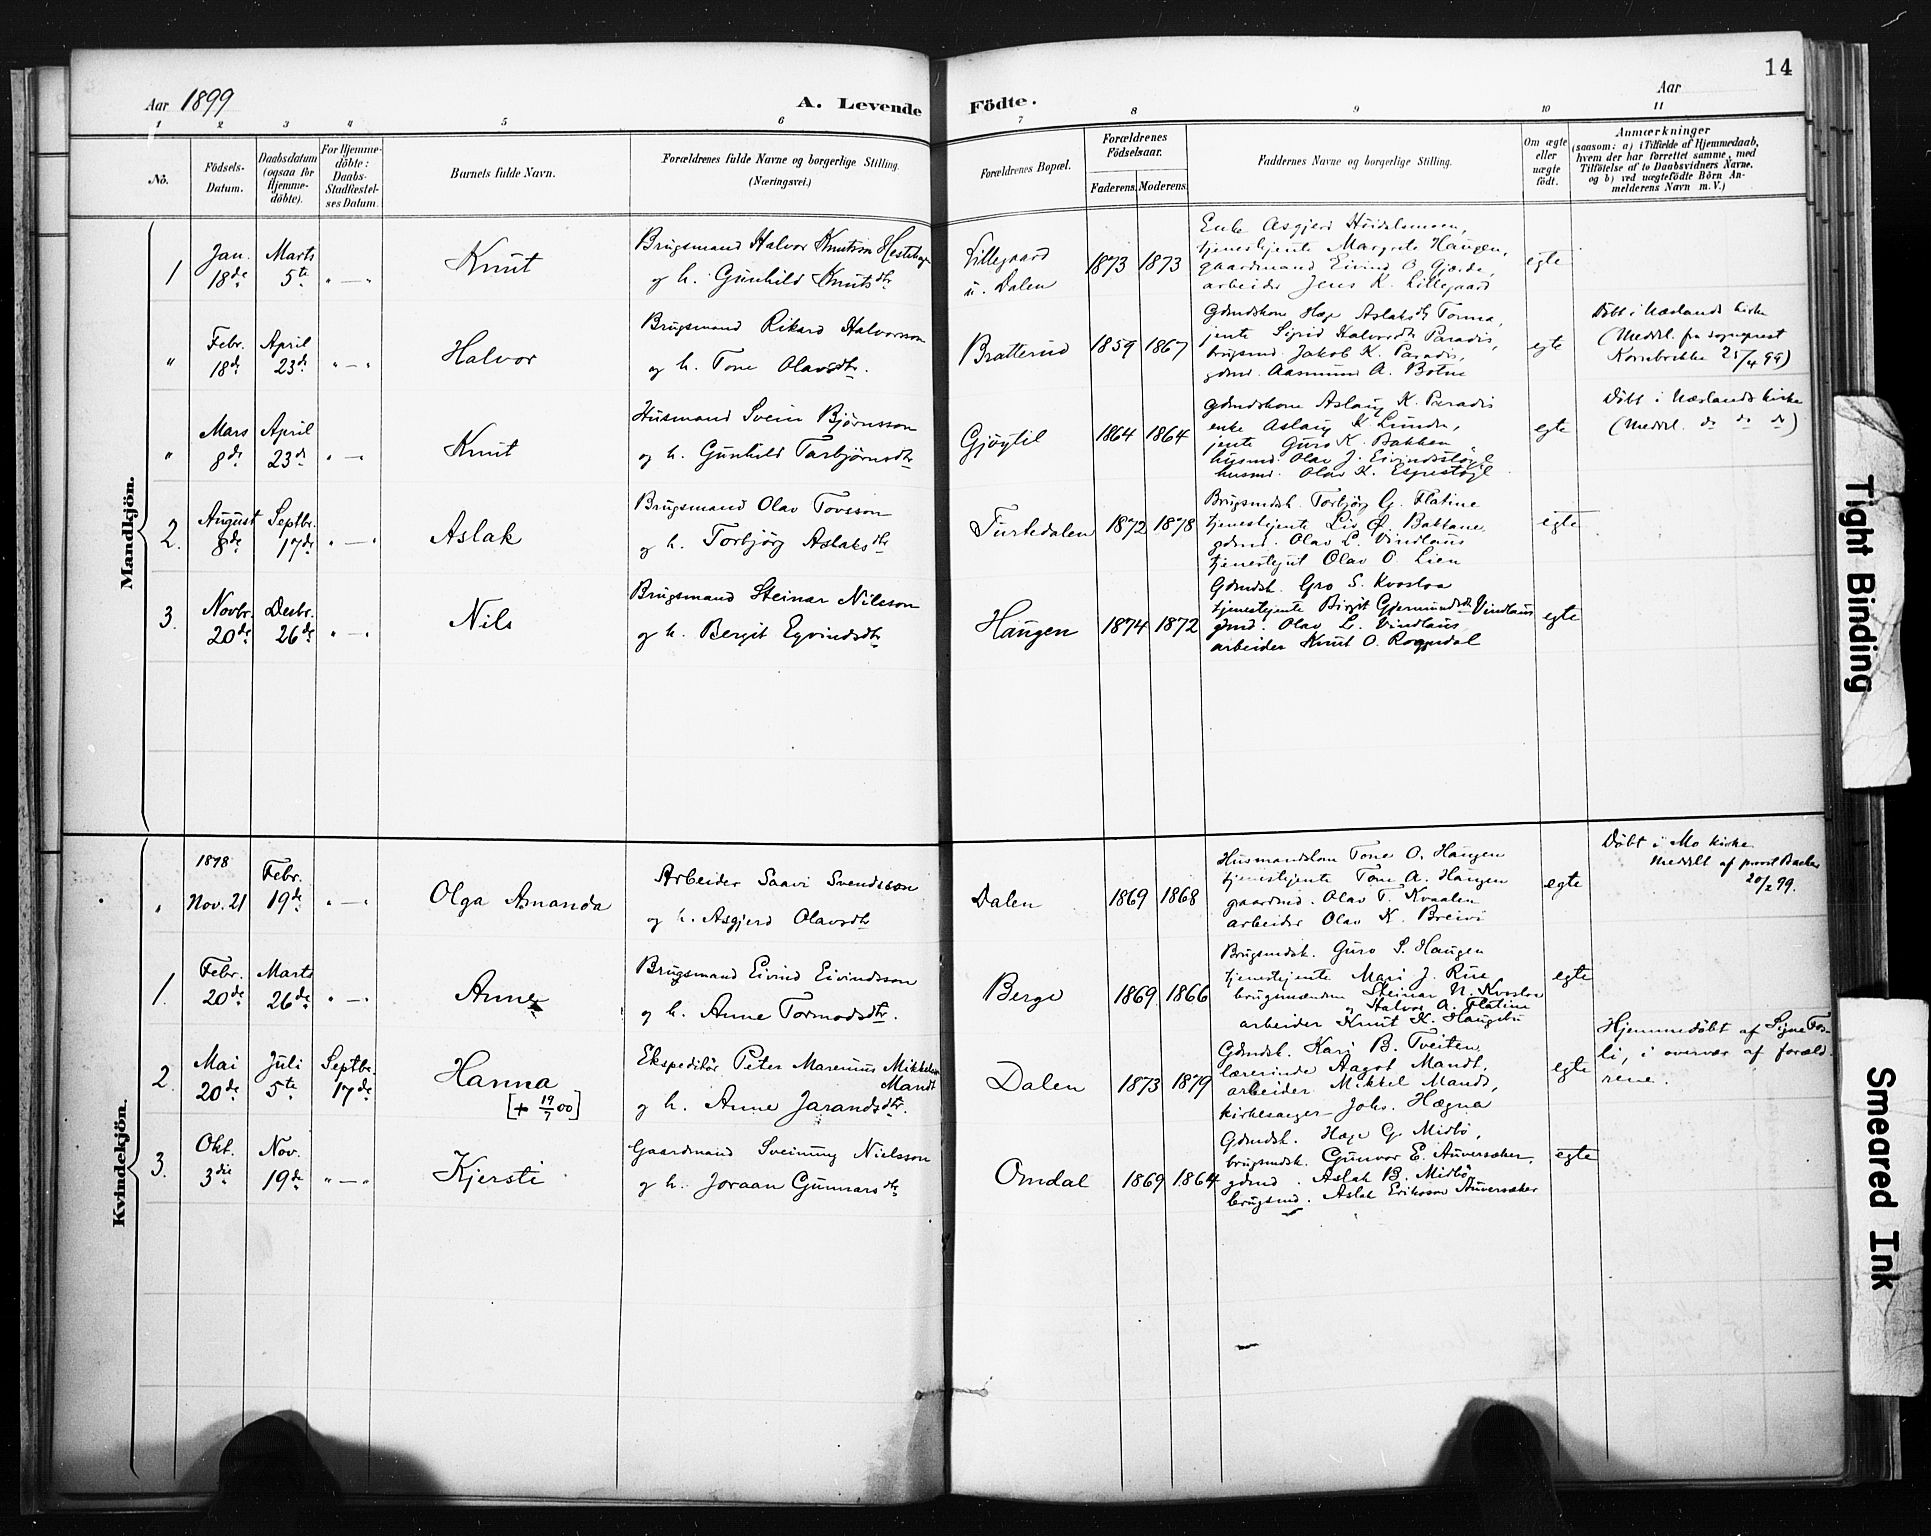 14
Aar 1899
A. Levende Födte.
Aar
1 2 3 4 5 6 7 8 9 10 11
No.
Födsels-Datum.
Daabsdatum (ogsaa for Hjemme-döbte).
For Hjemme-döbte: Daabs-Stadfæstel-ses Datum.
Barnets fulde Navn.
Forældrenes fulde Navne og borgerlige Stilling. (Næringsvei.)
Forældrenes Bopæl.
Forældrenes Födselsaar.
Faderens. Moderens.
Faddernes Navne og borgerlige Stilling.
Om ægte eller uægte födt.
Anmærkninger
(saasom: a) i Tilfælde af Hjemmedaab,
hvem der har forrettet samme, med
Tilföielse af to Daabsvidners Navne,
og b) ved uægtefödte Börn An-
melderens Navn m.V.)
Mandkjön.
1
Jan. 18de
Marts 5te
" — "
Knut
Brugsmand Halvor Knutsson
og h. Gunhild Knutsdtr
Lillegaard
u. Dalen
1873 1873
Enke Asgjerd
tjenestejente Margrete Haugen,
gaardmand Eivind O. Gjærde,
arbeider Jens K. Lillegaard
egte
"
Febr. 18de
April 23de
" — "
Halvor
Brugsmand Rikard Halvorsson
og h. Tone Olavsdtr.
Bratterud
1859 1867
Gdmdskone Hæge Aslaksdtr
jente Sigrid Halvorsdtr Paradis,
brugsmd. Jakob K. Paradis,
gdmd. Aasmund A. Botne
egte
Döbt i Næslands kirke
(Meddel. fra sogneprest
25/4 99)
"
Mars 8de
April 23de
" — "
Knut
Husmand Svein Bjørnsson
og h. Gunhild Tarbjørnsdtr
Gjøytil
1864 1864
Gdmdskone Aslaug K. Paradis
enke Aslaug K. Lunde,
jente Guro K. Bakken
husmd. Olav J. Eivindsstøyl
husmd. Olav K. Espestøyl
egte
Döbt i Næslands kirke
(Meddel. do do do)
2.
August 8de
Septbr. 17de
" — "
Aslak
Brugsmand Olav Tovsson
og h. Torbjørg Aslaksdtr
Turtedalen
1872 1878
Brugsmdsk. Torbjørg G. Flatine
tjenestejente Liv Ø. Bakkane
gdmd. Olav L. Vindlaus
tjenestegut Olav O. Lien
egte
3.
Novbr. 20de
Desbr. 26de
" — "
Nils
Brugsmand Steinar Nilsson
og h. Bergit Eyvindsdtr
Haugen
1874 1872
Gdmdsk. Gro S. Kvosloa
tjenestejente Birgit Gjermundsdtr Vindlaus
gdmd. Olav L. Vindlaus
arbeider Knut O. Rogndal
egte
Kvindekjön.
"
1898
Nov. 21
Febr. 19de
" — "
Olga Amanda
Arbeider Saavi Svendsson
og h. Asgjerd Olavsdtr
Dalen
1869 1868
Husmandskone Tone O. Haugen
tjenestejente Tone A. Haugen
gaardmd. Olav T. Kvaalen
arbeider Olav K. Breivi
egte
Döbt i Mo kirke
meddelt af provst
20/2 99.
1.
Febr. 20de
Marts 26de
" — "
Anne
Brugsmand Eivind Eivindsson
og h. Anne Tormodsdtr.
Berge
1869 1866
Brugsmdsk. Guro S. Haugen
tjenestejente Mari J. Rue
brugsmændene Steinar N. Kvosloa
" Halvor A. Flatine
arbeider Knut K. Haugebu
egte
2.
Mai 20de
Juli 5te
Septbr. 17de
Hanna
[+ 19/7 00]
Ekspeditör Peter Marenius Mikkelsen
Mandt
og h. Anne Jarandsdtr.
Dalen
1873 1879
Gdmdsk. Kari B. Tveiten
lærerinde Aagot Mandt,
arbeider Mikkel Mandt,
kirkesanger Johs. Hægna
egte
Hjemmedöbt af Signe Fos-
li, i overvær af foræld-
rene.
3.
Okt. 3die
Nov. 19de
" — "
Kjersti
Gaardmand Sveinung Nielsson
og h. Joraan Gunnarsdtr
Omdal
1869 1864
Gdmdsk. Hæge G. Midbö,
brugsmdsk. Gunvor E. Auversaker,
gdmd. Aslak B. Midbö,
brugsmd. Aslak Eriksson Auversaker
egte
Tight Binding
Smeared Ink